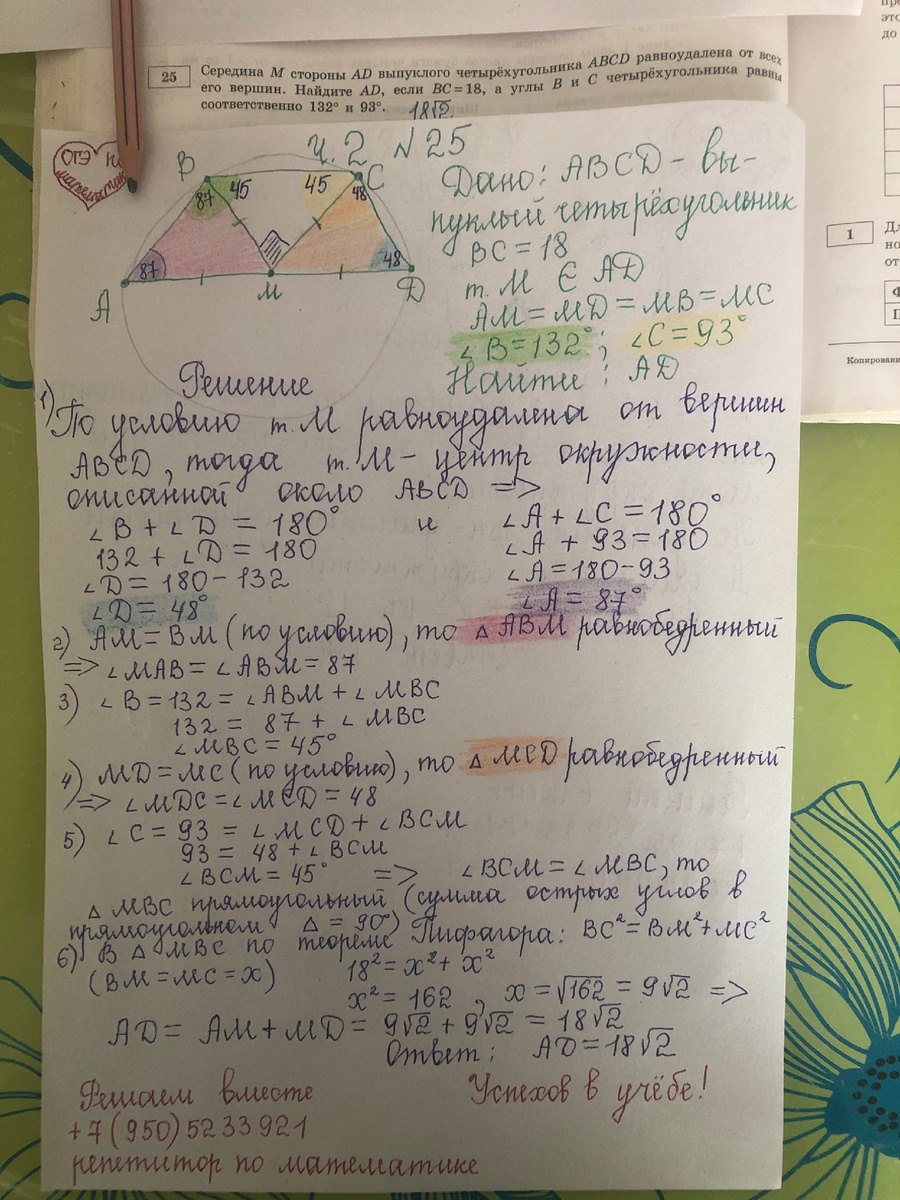 25
Середина M стороны AD выпуклого четырёхугольника ABCD равноудалена от всех
его вершин. Найдите AD, если BC=18, а углы B и C четырёхугольника равны
соответственно 132° и 93°.
18√2
ОГЭ по
математике
ч.2 №25
B
45
45
C
87
48
87
48
A
M
D
Дано: ABCD - вы-
пуклый четырёхугольник
BC = 18
т. M ∈ AD
AM = MD = MB = MC
∠B=132°; ∠C=93°
Найти: AD
Решение
1) По условию т. M равноудалена от вершин
ABCD, тогда т. M - центр окружности,
описанной около ABCD =>
∠B + ∠D = 180° и ∠A + ∠C = 180°
132 + ∠D = 180 ∠A + 93 = 180
∠D = 180 - 132 ∠A = 180 - 93
∠D = 48° ∠A = 87°
2) AM = BM (по условию), то △ABM равнобедренный
=> ∠MAB = ∠ABM = 87
3) ∠B = 132 = ∠ABM + ∠MBC
132 = 87 + ∠MBC
∠MBC = 45°
4) MD = MC (по условию), то △MCD равнобедренный
=> ∠MDC = ∠MCD = 48
5) ∠C = 93 = ∠MCD + ∠BCM
93 = 48 + ∠BCM
∠BCM = 45° => ∠BCM = ∠MBC, то
△MBC прямоугольный (сумма острых углов в
прямоугольном △ = 90°)
6) В △MBC по теореме Пифагора: BC² = BM² + MC²
(BM = MC = x) 18² = x² + x²
x² = 162, x = √162 = 9√2 =>
AD = AM + MD = 9√2 + 9√2 = 18√2
Ответ: AD = 18√2
Решаем вместе Успехов в учёбе!
+7(950)5233921
репетитор по математике
1
Копировани